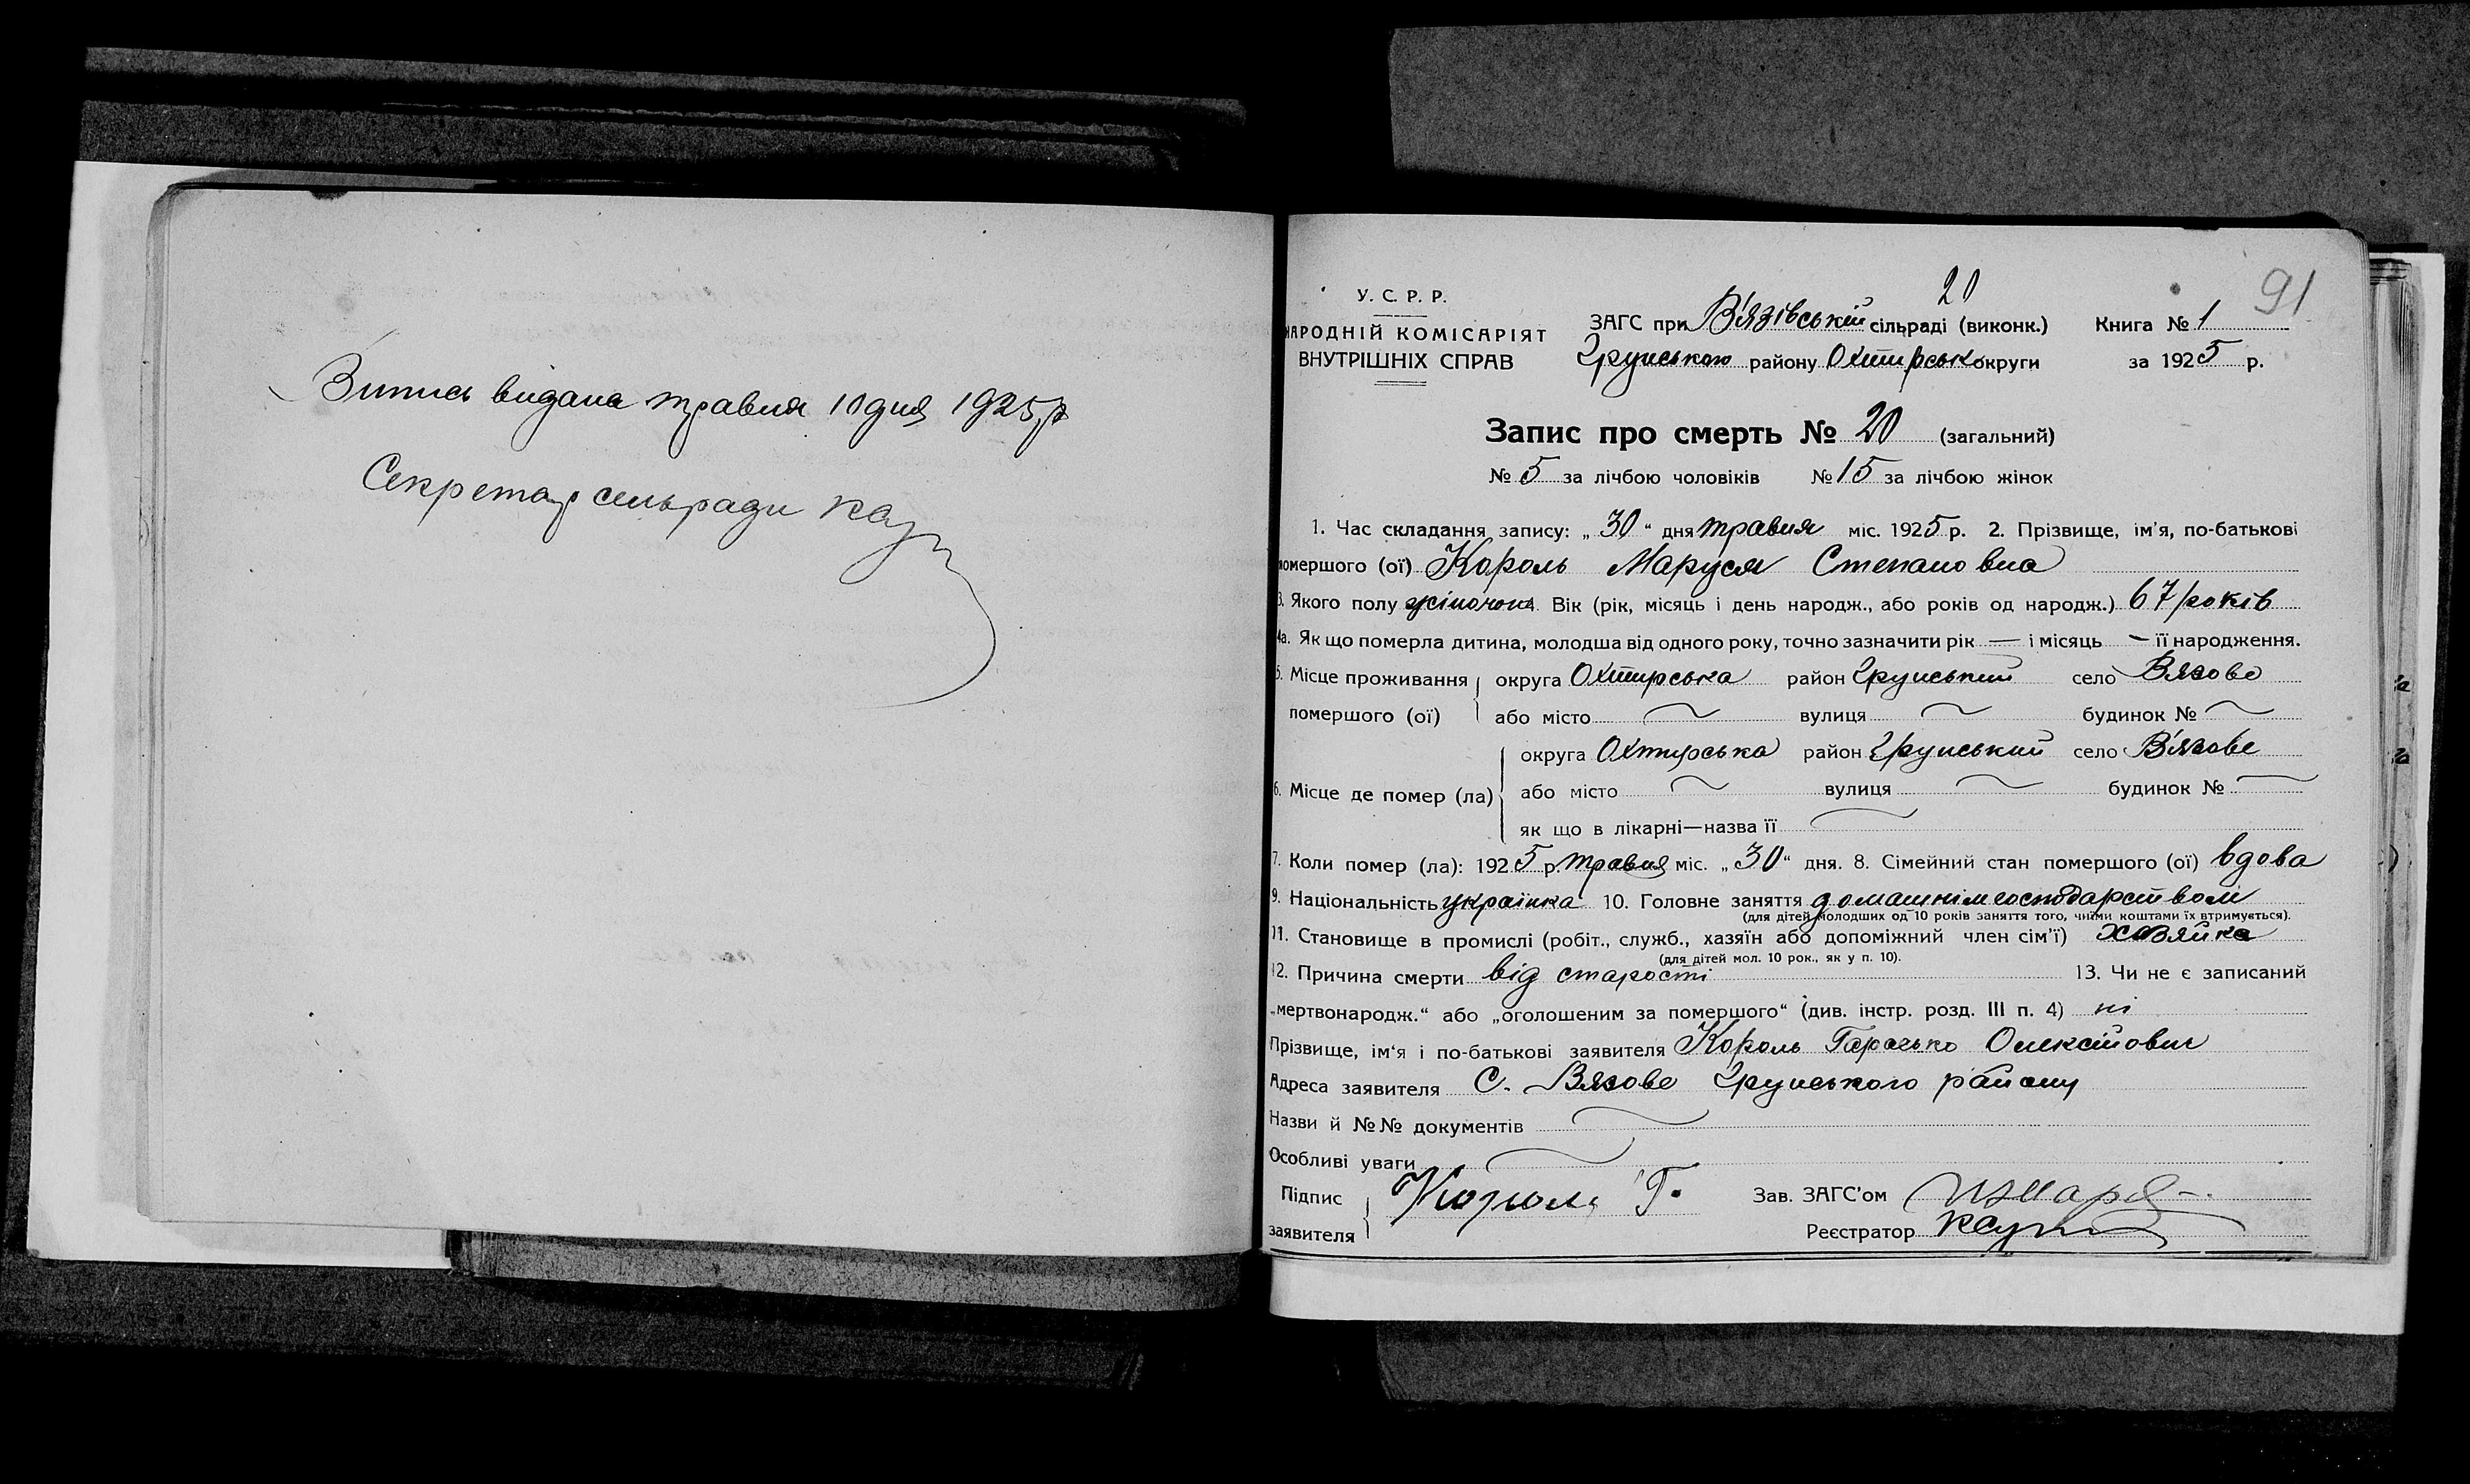 Випись видана травня 10 дня 1925 р
Секретар сельради
20
91
У. С. Р. Р.
НАРОДНІЙ КОМІСАРІЯТ
ВНУТРІШНІХ СПРАВ
ЗАГС при В'язівській сільраді (виконк.) Книга № 1
Грунського району Охтирськ округи за 1925 р.
Запис про смерть № 20 (загальний)
№ 5 за лічбою чоловіків № 15 за лічбою жінок
1. Час складання запису: „30“ дня травня міс. 1925 р. 2. Прізвище, ім'я, по-батькові
помершого (ої) Король Маруся Степановна
3. Якого полу жіночок 4. Вік (рік, місяць і день народж., або років од народж.) 67 років
4а. Як що померла дитина, молодша від одного року, точно зазначити рік — і місяць — її народження.
5. Місце проживання округа Охтирська район Грунський село Вязове
помершого (ої) або місто вулиця будинок №
округа Охтирська район Грунський село В'язове
6. Місце де помер (ла) або місто вулиця будинок №
як що в лікарні—назва її
7. Коли помер (ла): 1925 р. травня міс. „30“ дня. 8. Сімейний стан помершого (ої) вдова
9. Національність українка 10. Головне заняття домашнім господарством
(для дітей молодших од 10 років заняття того, чиїми коштами їх втримується).
11. Становище в промислі (робіт., служб., хазяїн або допоміжний член сім'ї) хозяйка
(для дітей мол. 10 рок., як у п. 10).
12. Причина смерти від старости 13. Чи не є записаний
„мертвонародж.“ або „оголошеним за помершого“ (див. інстр. розд. III п. 4) ні
Прізвище, ім'я і по-батькові заявителя Король Гарасько Олексійович
Адреса заявителя С. Вязове Грунського району
Назви й №№ документів
Особливі уваги
Підпис Король Г. Зав. ЗАГС'ом
заявителя Реєстратор